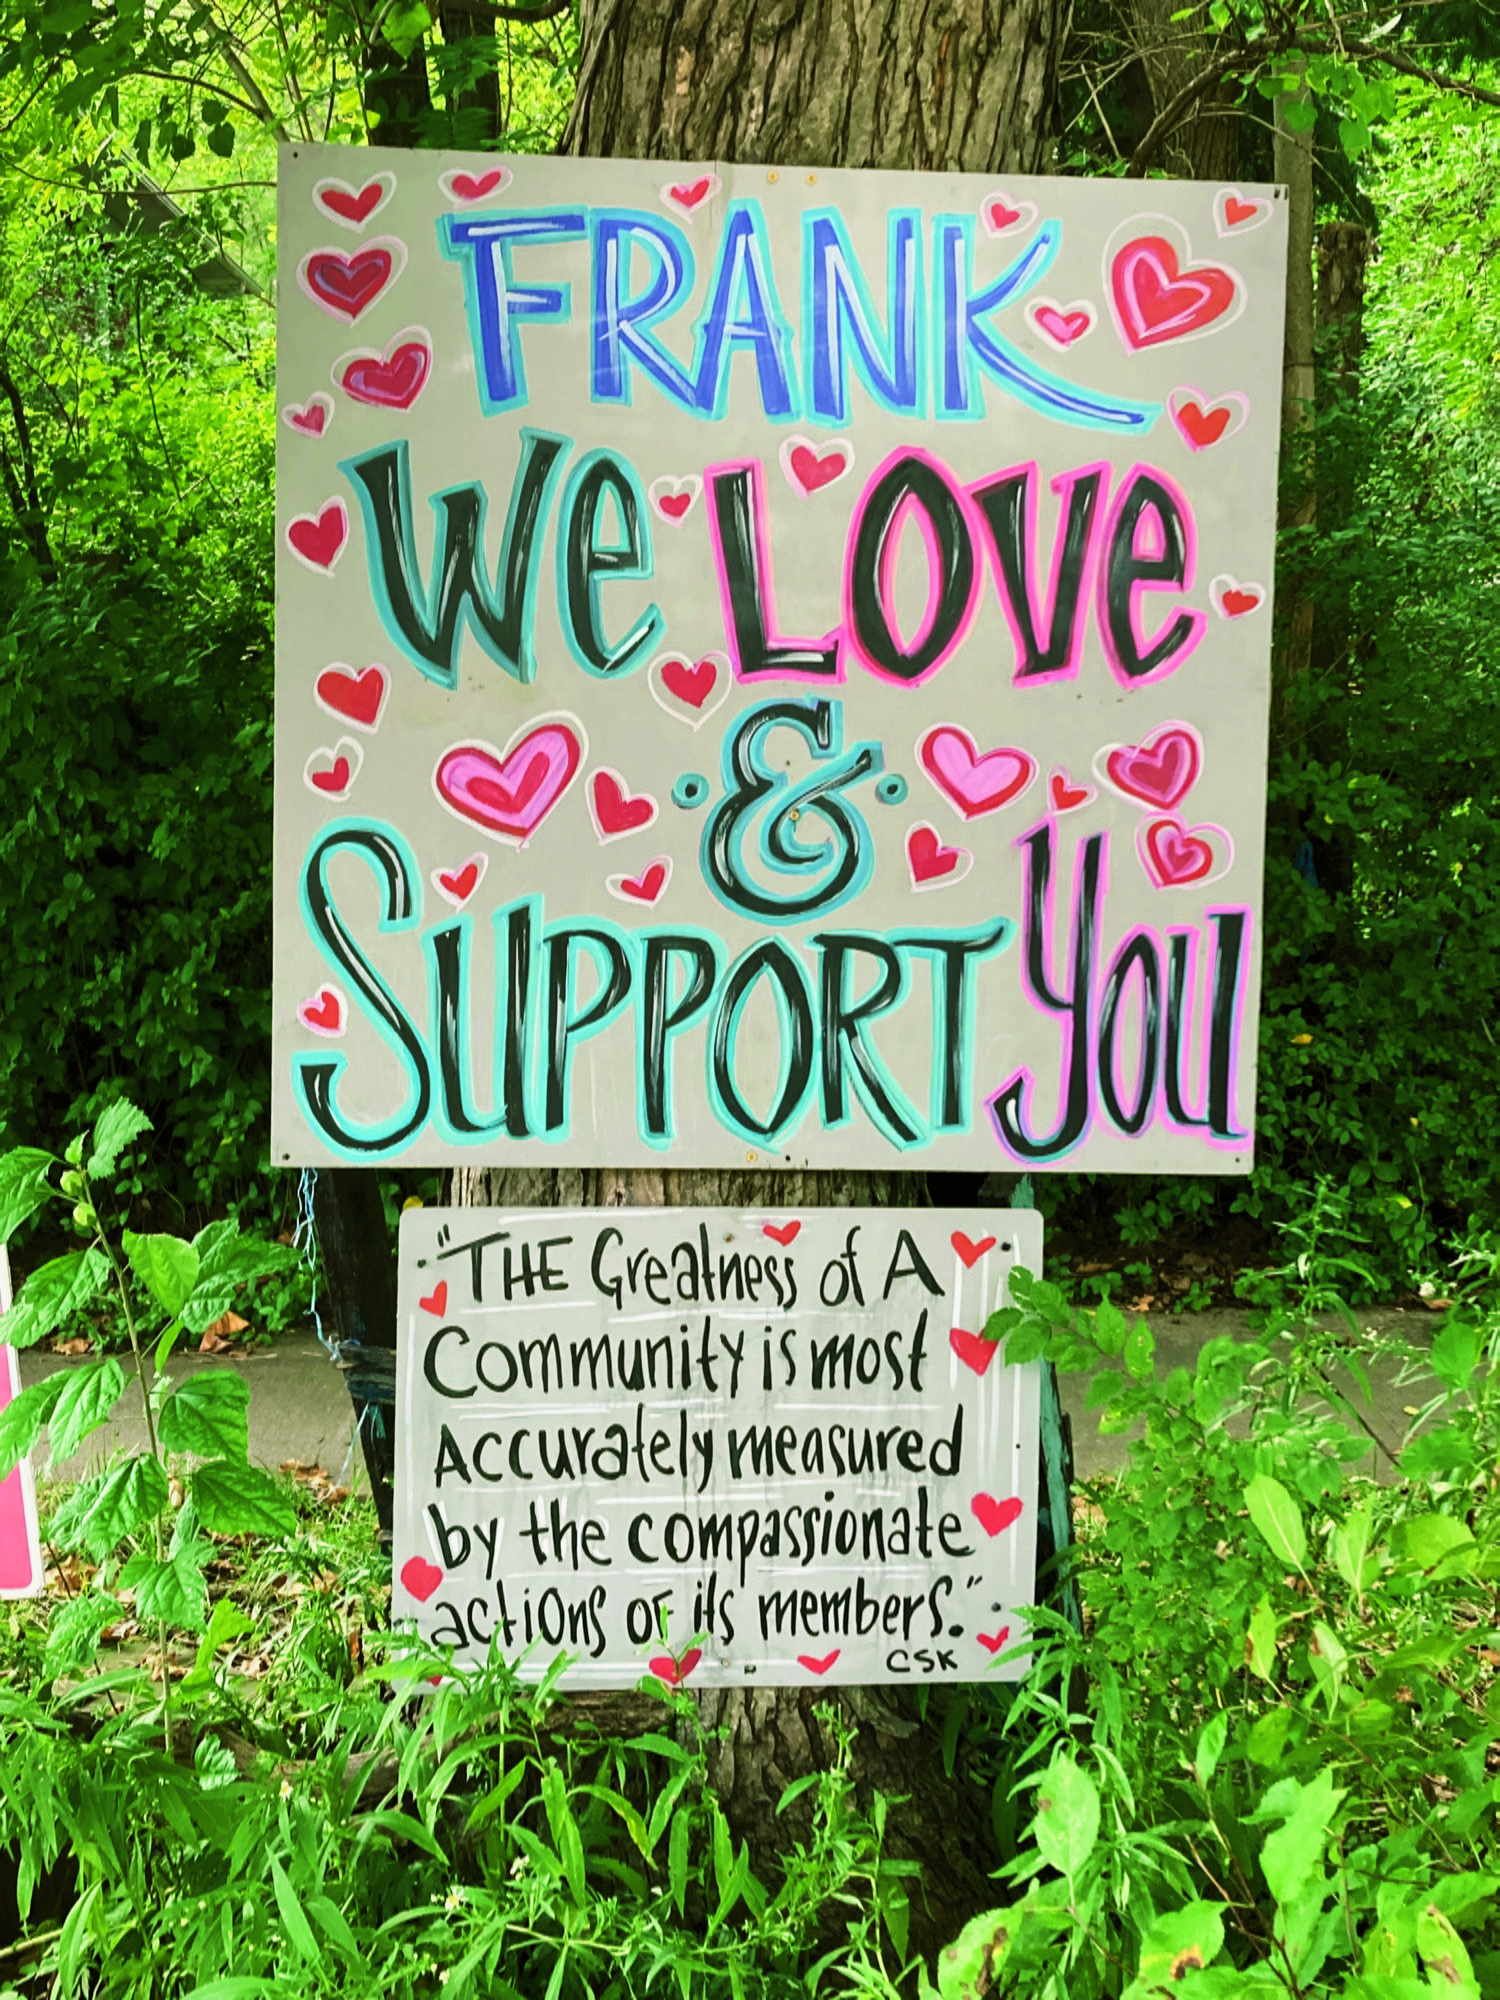 FRANK
We LOVe
&
SUPPORT You
"THE Greatness of A
Community is most
Accurately measured
by the compassionate
actions of its members."
CSK